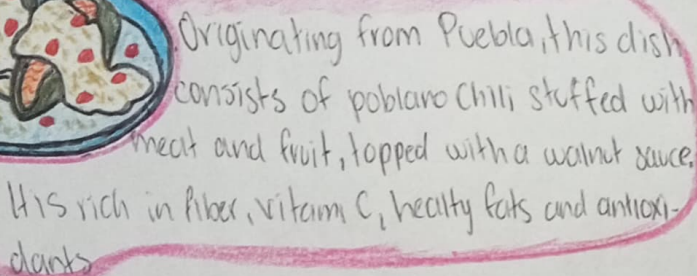 Originating from Puebla, this dish
consists of poblano Chilli stuffed with
meat and fruit, topped with a walnut sauce.
It is rich in fiber, vitamin C, healty fats and antioxi-
dants